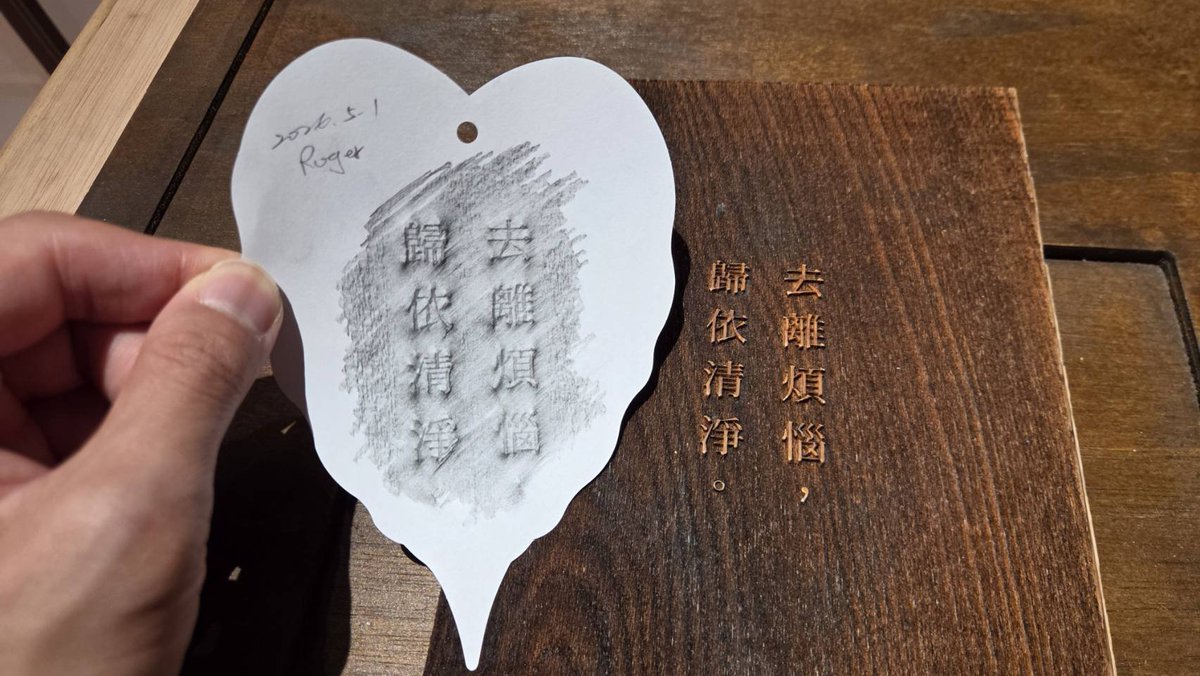 2026.5.1
Roger
去離煩惱
歸依清淨
去離煩惱，
歸依清淨。